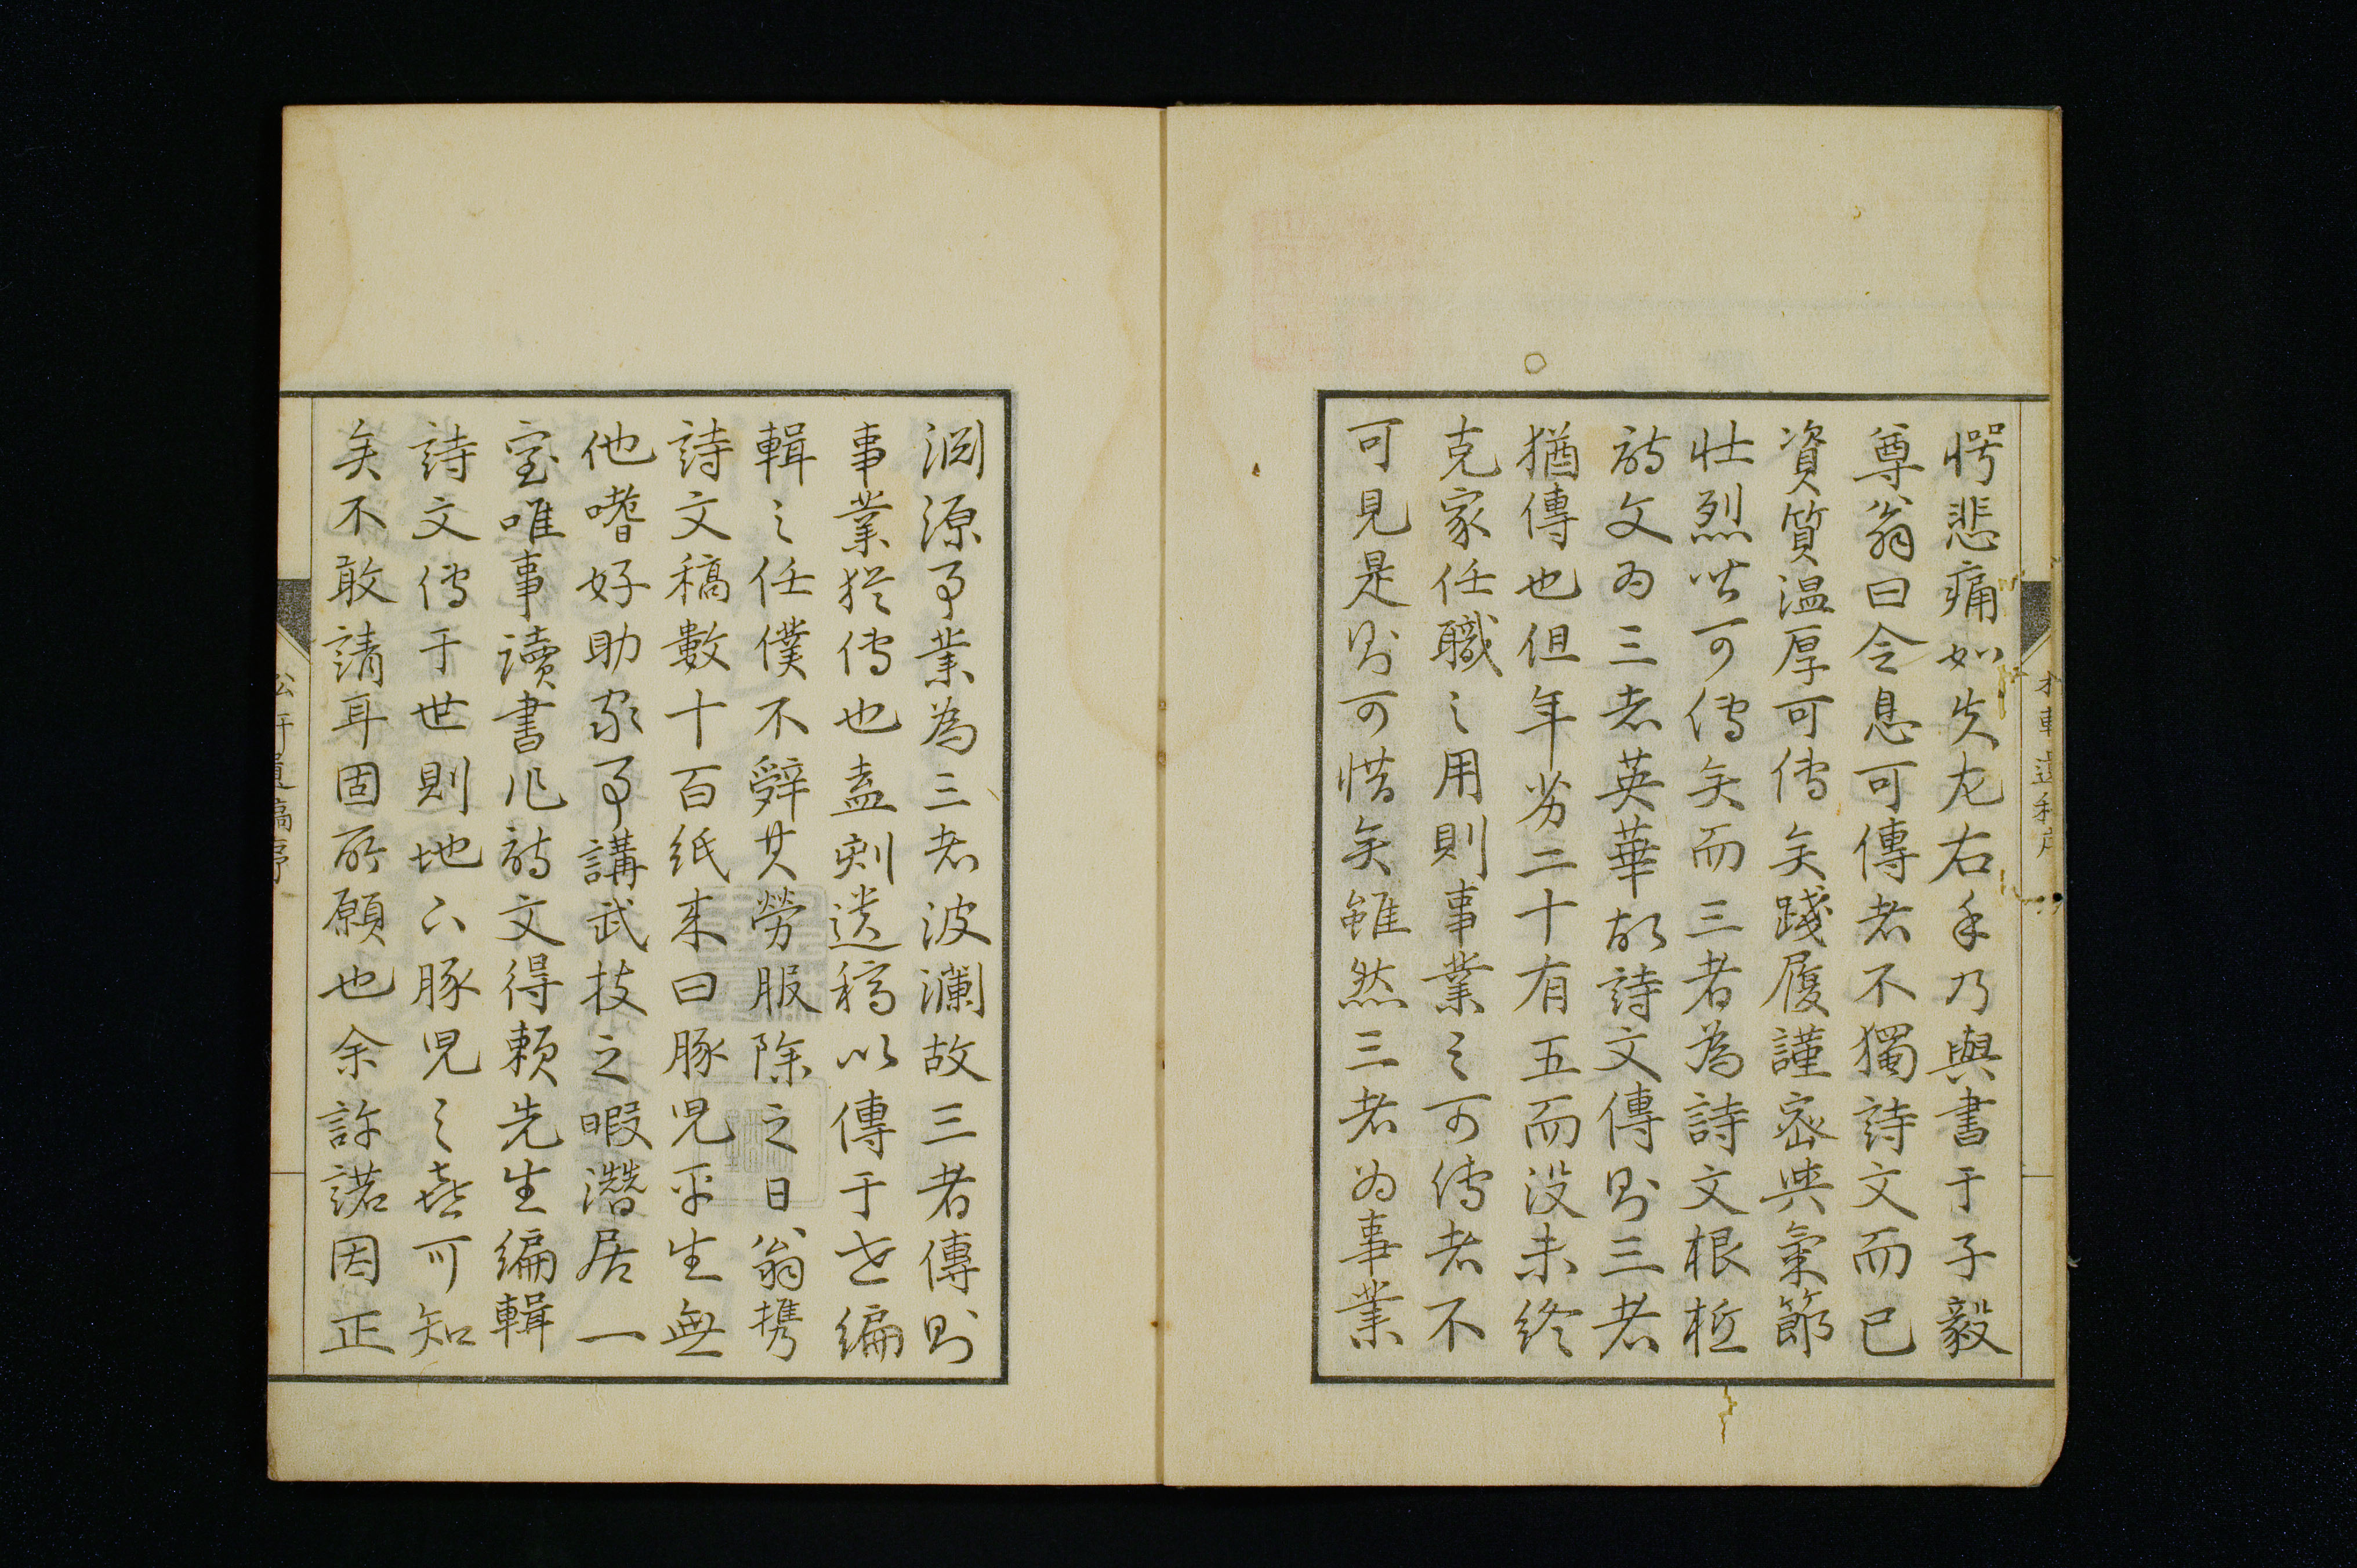 愕悲痛如失左右手乃與書于子毅
尊翁曰令息可傳者不獨詩文而已
資質温厚可傳矣踐履謹密與氣節
壮烈皆可傳矣而三者為詩文根柢
詩文為三者英華故詩文傳則三者
猶傳也但年劣二十有五而没未終
克家任職之用則事業之可傳者不
可見是則可惜矣雖然三者為事業
淵源事業為三者波瀾故三者傳則
事業猶傳也盍刻遺稿以傳于世編
輯之任僕不辞其勞服除之日翁携
詩文稿數十百紙来曰豚児平生無
他嗜好助家事講武技之暇潛居一
室唯事讀書作詩文得頼先生編輯
詩文傳于世則地下豚児之喜可知
矣不敢請耳固所願也余許諾因正
松軒遺稿序